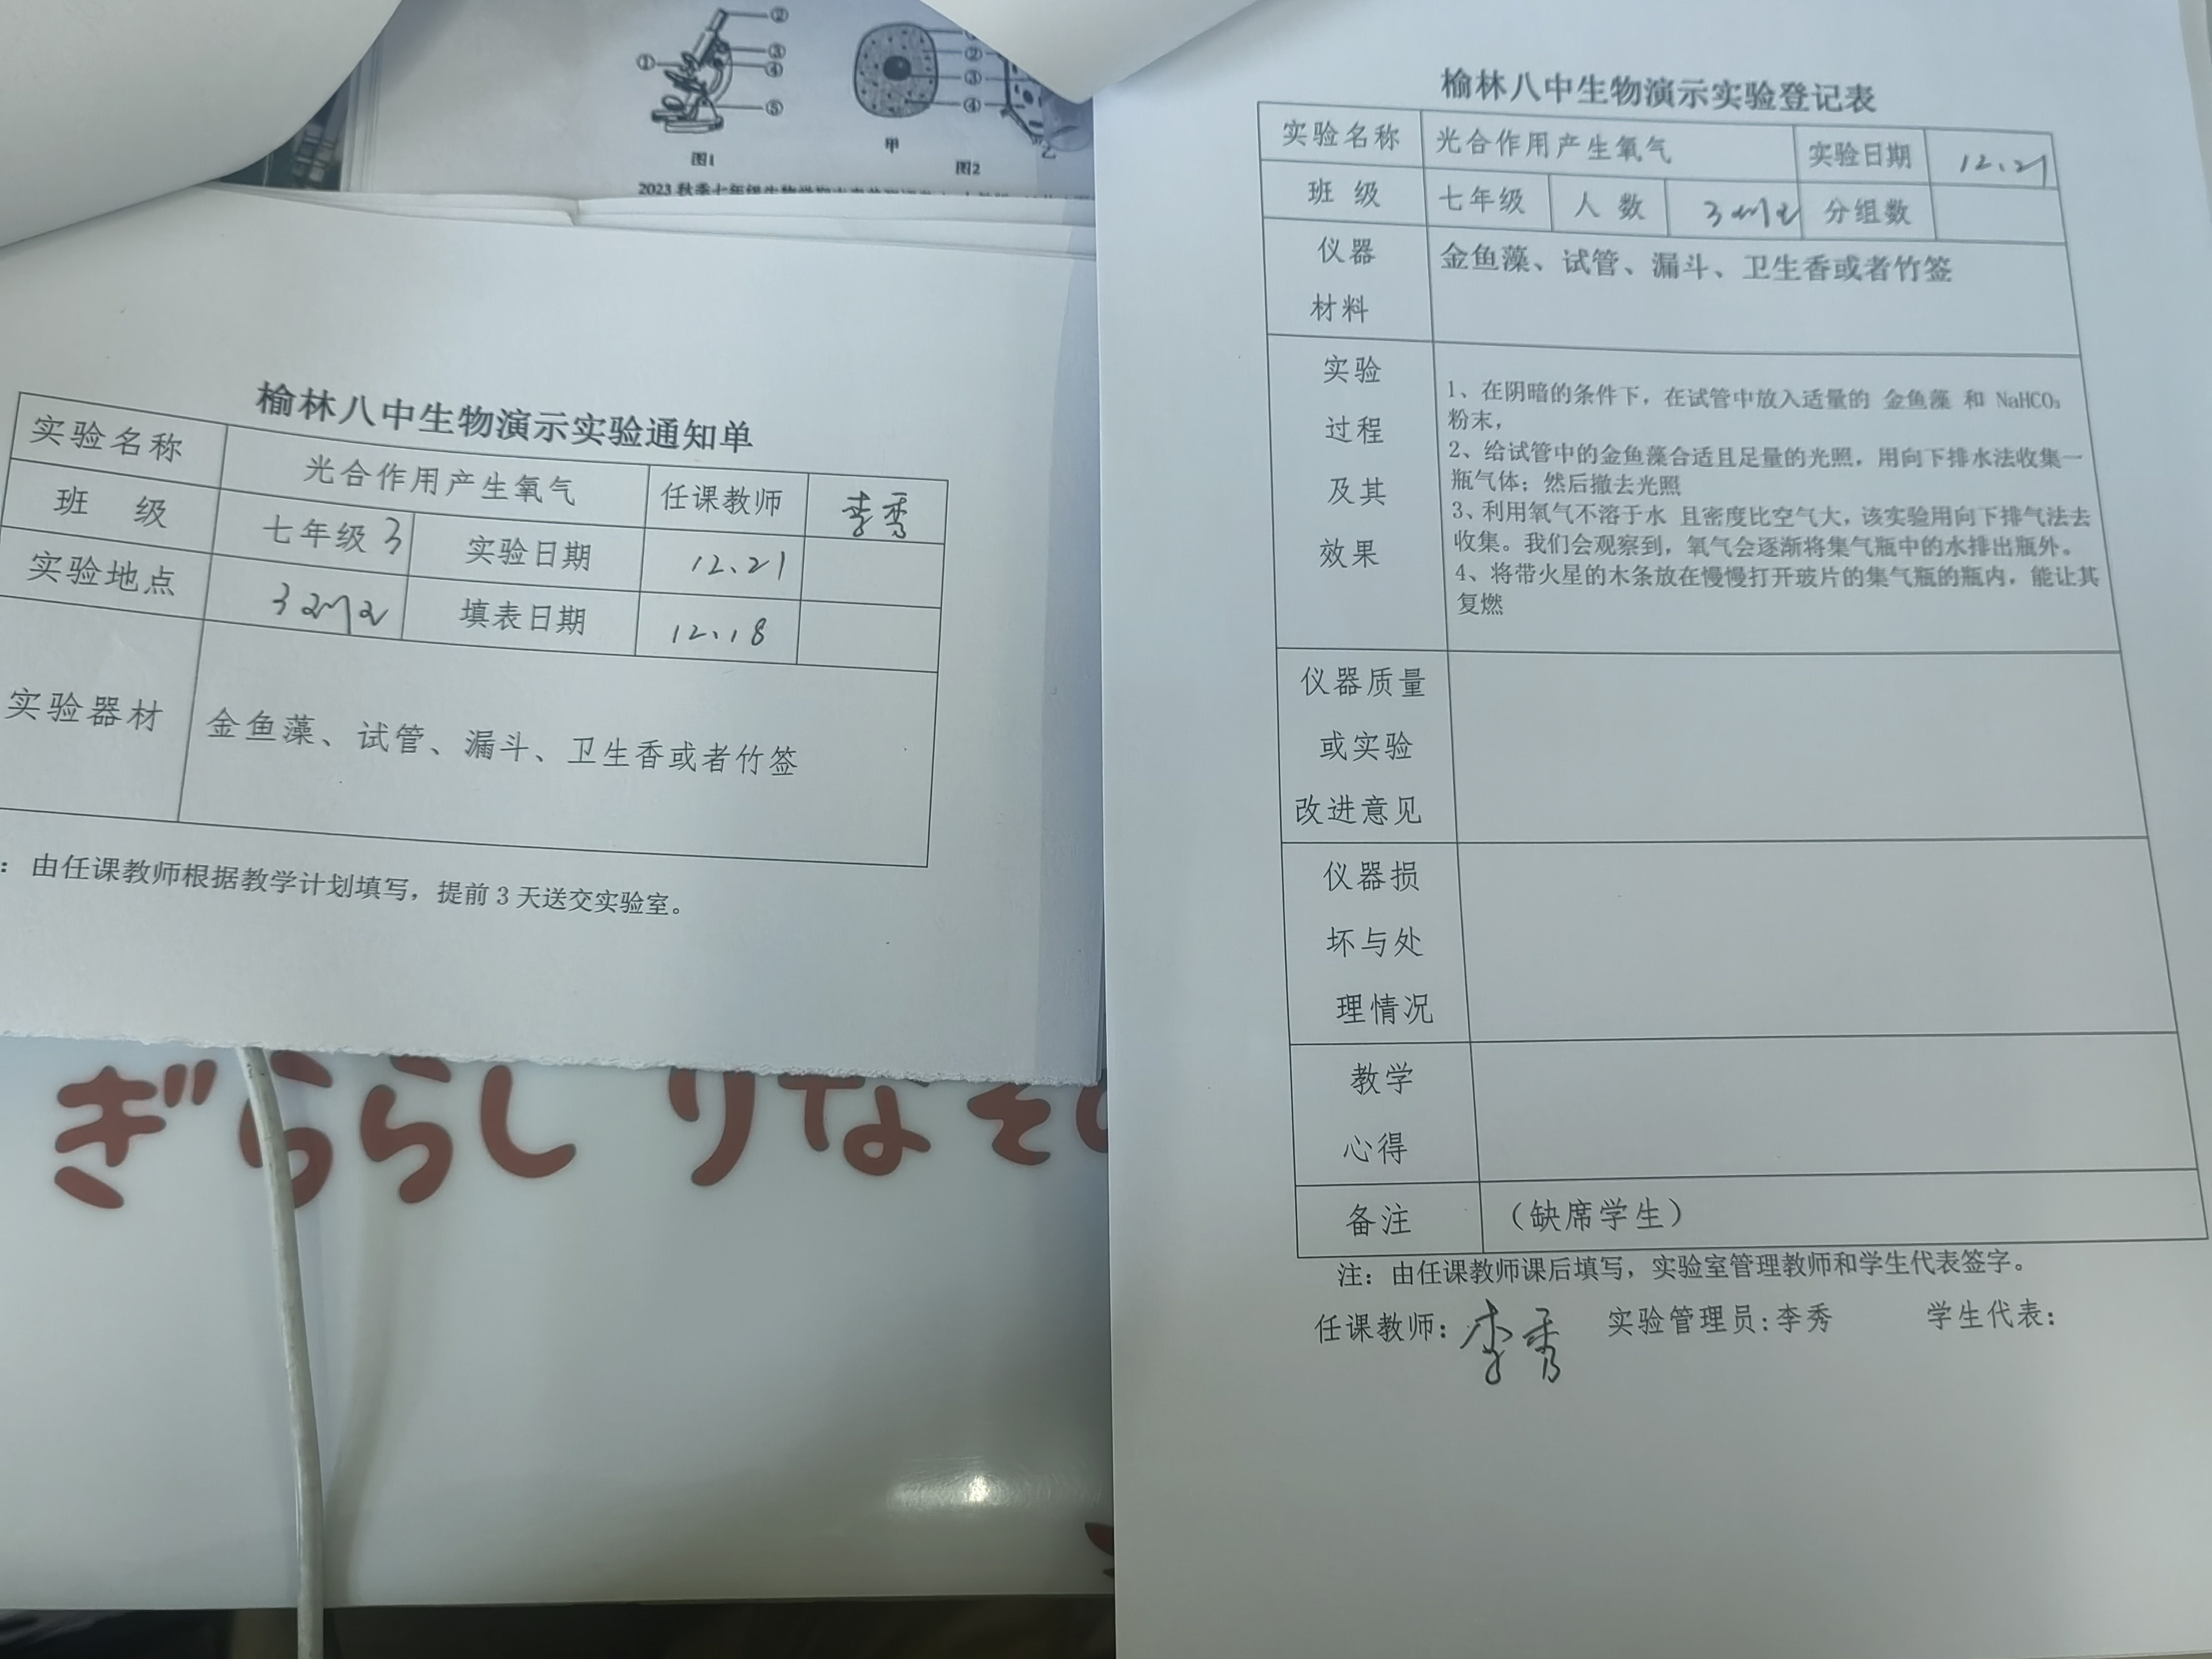 ② 
① ③
④
⑤
图1
②
③
④
甲
乙
图2
榆林八中生物演示实验通知单
实验名称 光合作用产生氧气 任课教师 李秀
班 级 七年级 3 实验日期 12、21
实验地点 填表日期 12、18
实验器材 金鱼藻、试管、漏斗、卫生香或者竹签
：由任课教师根据教学计划填写，提前 3 天送交实验室。
ぎららし りなその
榆林八中生物演示实验登记表
实验名称 光合作用产生氧气 实验日期 12、21
班 级 七年级 人 数 分组数
仪器 金鱼藻、试管、漏斗、卫生香或者竹签
材料
实验
过程
及其
效果
1、在阴暗的条件下，在试管中放入适量的 金鱼藻 和 NaHCO₃
粉末，
2、给试管中的金鱼藻合适且足量的光照，用向下排水法收集一
瓶气体；然后撤去光照
3、利用氧气不溶于水 且密度比空气大，该实验用向下排气法去
收集。我们会观察到，氧气会逐渐将集气瓶中的水排出瓶外。
4、将带火星的木条放在慢慢打开玻片的集气瓶的瓶内，能让其
复燃
仪器质量
或实验
改进意见
仪器损
坏与处
理情况
教学
心得
备注 （缺席学生）
注：由任课教师课后填写，实验室管理教师和学生代表签字。
任课教师：李秀 实验管理员：李秀 学生代表：